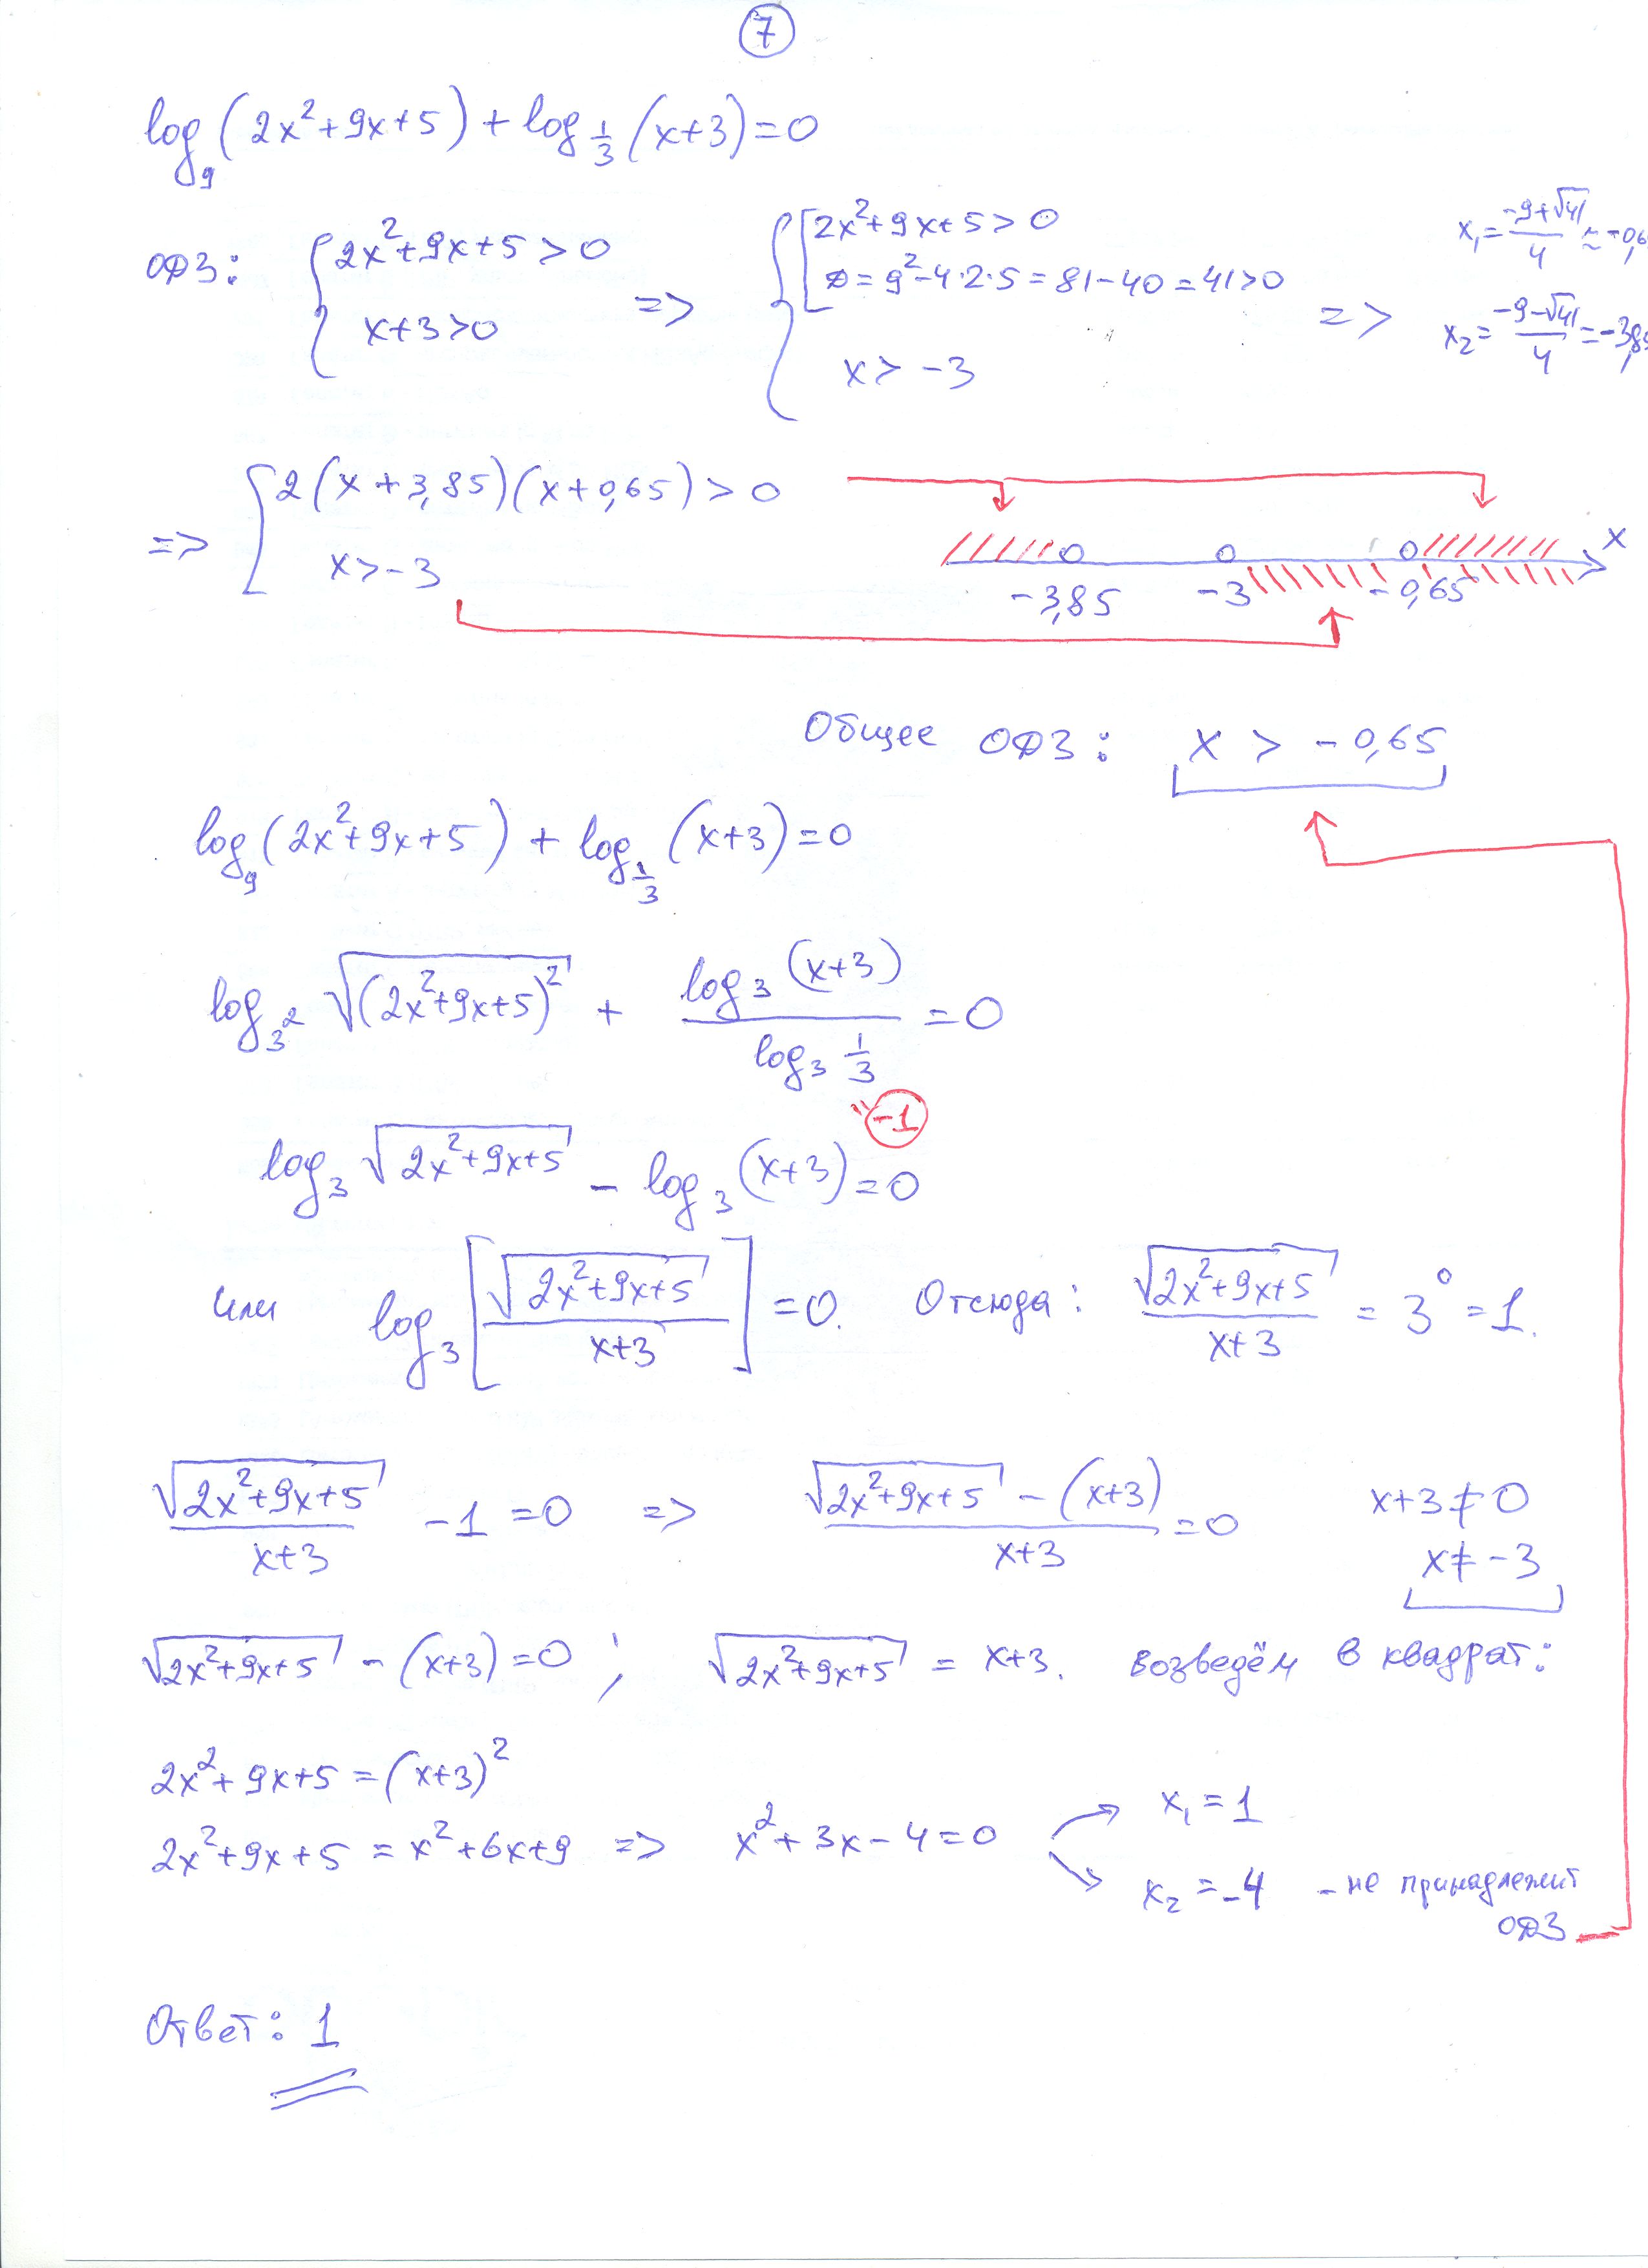 7
log₉(2x²+9x+5)+log_{1/3}(x+3)=0
ОДЗ: { 2x²+9x+5>0 ; x+3>0 => { [ 2x²+9x+5>0 ; D=9²-4·2·5=81-40=41>0 ; x>-3 => x₁=(-9+√41)/4≈-0,6 ; x₂=(-9-√41)/4=-3,85
=> { 2(x+3,85)(x+0,65)>0 ; x>-3
-3,85 -3 -0,65 x
Общее ОДЗ: x > -0,65
log₉(2x²+9x+5)+log_{1/3}(x+3)=0
log_{3²}√(2x²+9x+5)² + log₃(x+3)/log₃ 1/3 =0
"-1
log₃√(2x²+9x+5) - log₃(x+3)=0
или log₃[√(2x²+9x+5)/(x+3)]=0. Отсюда: √(2x²+9x+5)/(x+3) = 3⁰=1.
√(2x²+9x+5)/(x+3) -1=0 => (√(2x²+9x+5)-(x+3))/(x+3)=0 x+3≠0
x≠-3
√(2x²+9x+5)-(x+3)=0; √(2x²+9x+5) = x+3. возведём в квадрат:
2x²+9x+5=(x+3)²
2x²+9x+5=x²+6x+9 => x²+3x-4=0 x₁=1
x₂=-4 - не принадлежит
ОДЗ
Ответ: 1